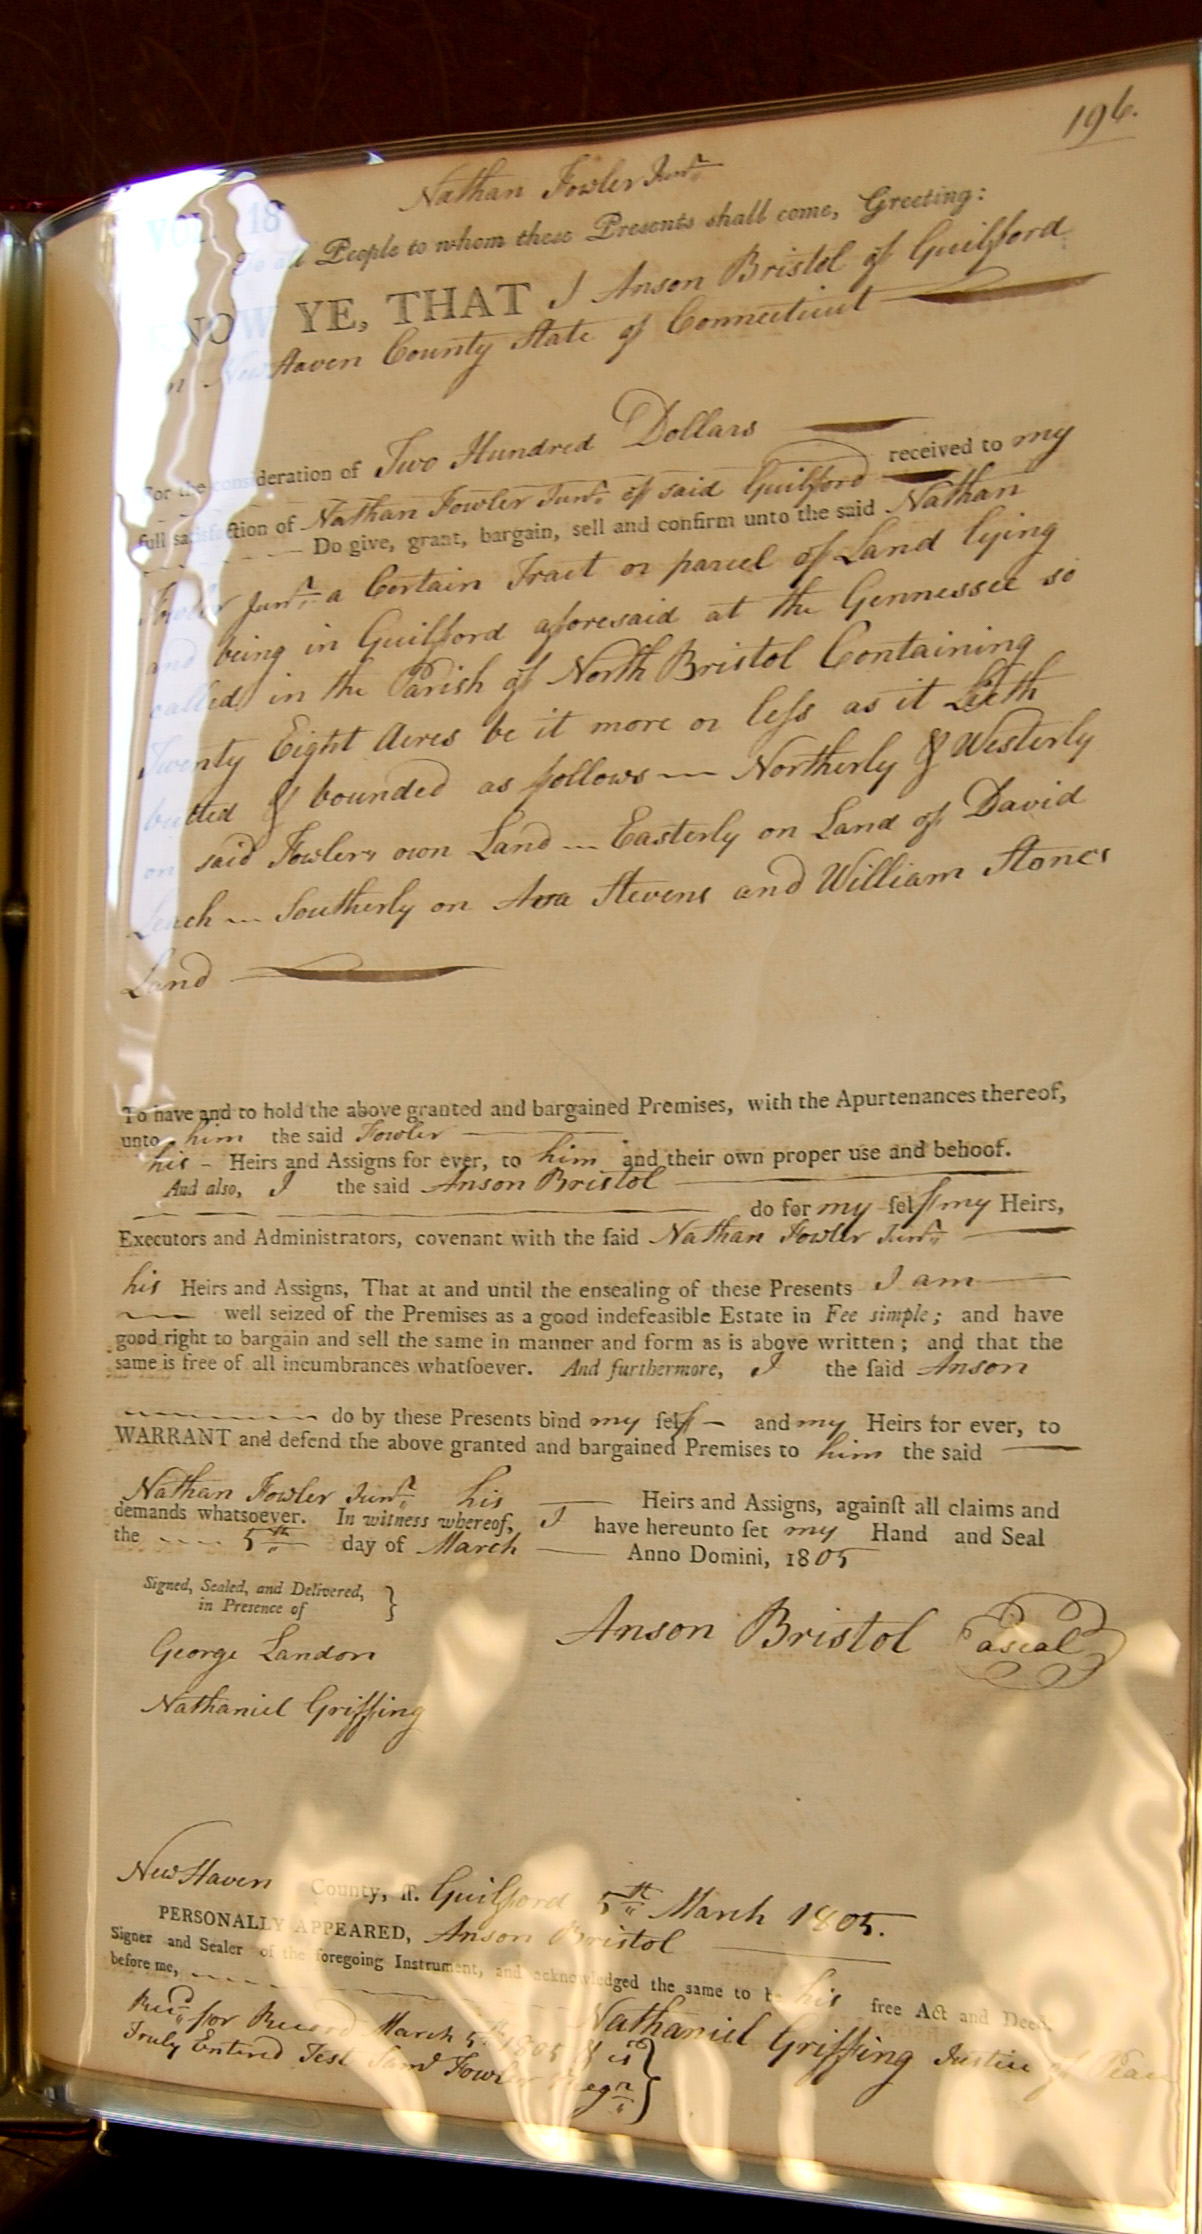 196.
Nathan Fowler Junr.
VOL. 18
To all People to whom these Presents shall come, Greeting:
KNOW YE, THAT I Anson Bristol of Guilford
in New Haven County State of Connecticut
For the consideration of Two Hundred Dollars
received to my
full satisfaction of Nathan Fowler Junr. of said Guilford
Do give, grant, bargain, sell and confirm unto the said Nathan
Fowler Junr. a Certain Tract or parcel of Land lying
and being in Guilford aforesaid at the Gennessee so
called in the Parish of North Bristol Containing
Twenty Eight Acres be it more or leſs as it Lieth
butted & bounded as follows — Northerly & Westerly
on said Fowlers own Land — Easterly on Land of David
Leach — Southerly on Asa Stevens and William Stones
Land
To have and to hold the above granted and bargained Premises, with the Apurtenances thereof,
unto him the said Fowler
his - Heirs and Assigns for ever, to him and their own proper use and behoof.
And also, I the said Anson Bristol
do for my ſelf my Heirs,
Executors and Administrators, covenant with the ſaid Nathan Fowler Junr.
his Heirs and Assigns, That at and until the ensealing of these Presents I am
well seized of the Premises as a good indefeasible Estate in Fee simple; and have
good right to bargain and sell the same in manner and form as is above written; and that the
same is free of all incumbrances whatſoever. And furthermore, I the ſaid Anson
do by these Presents bind my ſelf - and my Heirs for ever, to
WARRANT and defend the above granted and bargained Premises to him the said
Nathan Fowler Junr. his Heirs and Assigns, againſt all claims and
demands whatsoever. In witness whereof, I have hereunto ſet my Hand and Seal
the 5th day of March Anno Domini, 1805
Signed, Sealed, and Delivered,
in Presence of }
George Landon
Anson Bristol aseal
Nathaniel Griffing
New Haven County, ſſ. Guilford 5th March 1805.
PERSONALLY APPEARED, Anson Bristol
Signer and Sealer of the foregoing Instrument, and acknowledged the same to be his free Act and Deed.
before me,
Nathaniel Griffing Justice of Peace
Recd. for Record March 5th 1805 & is }
Truly Entered Test Saml Fowler Regr. }